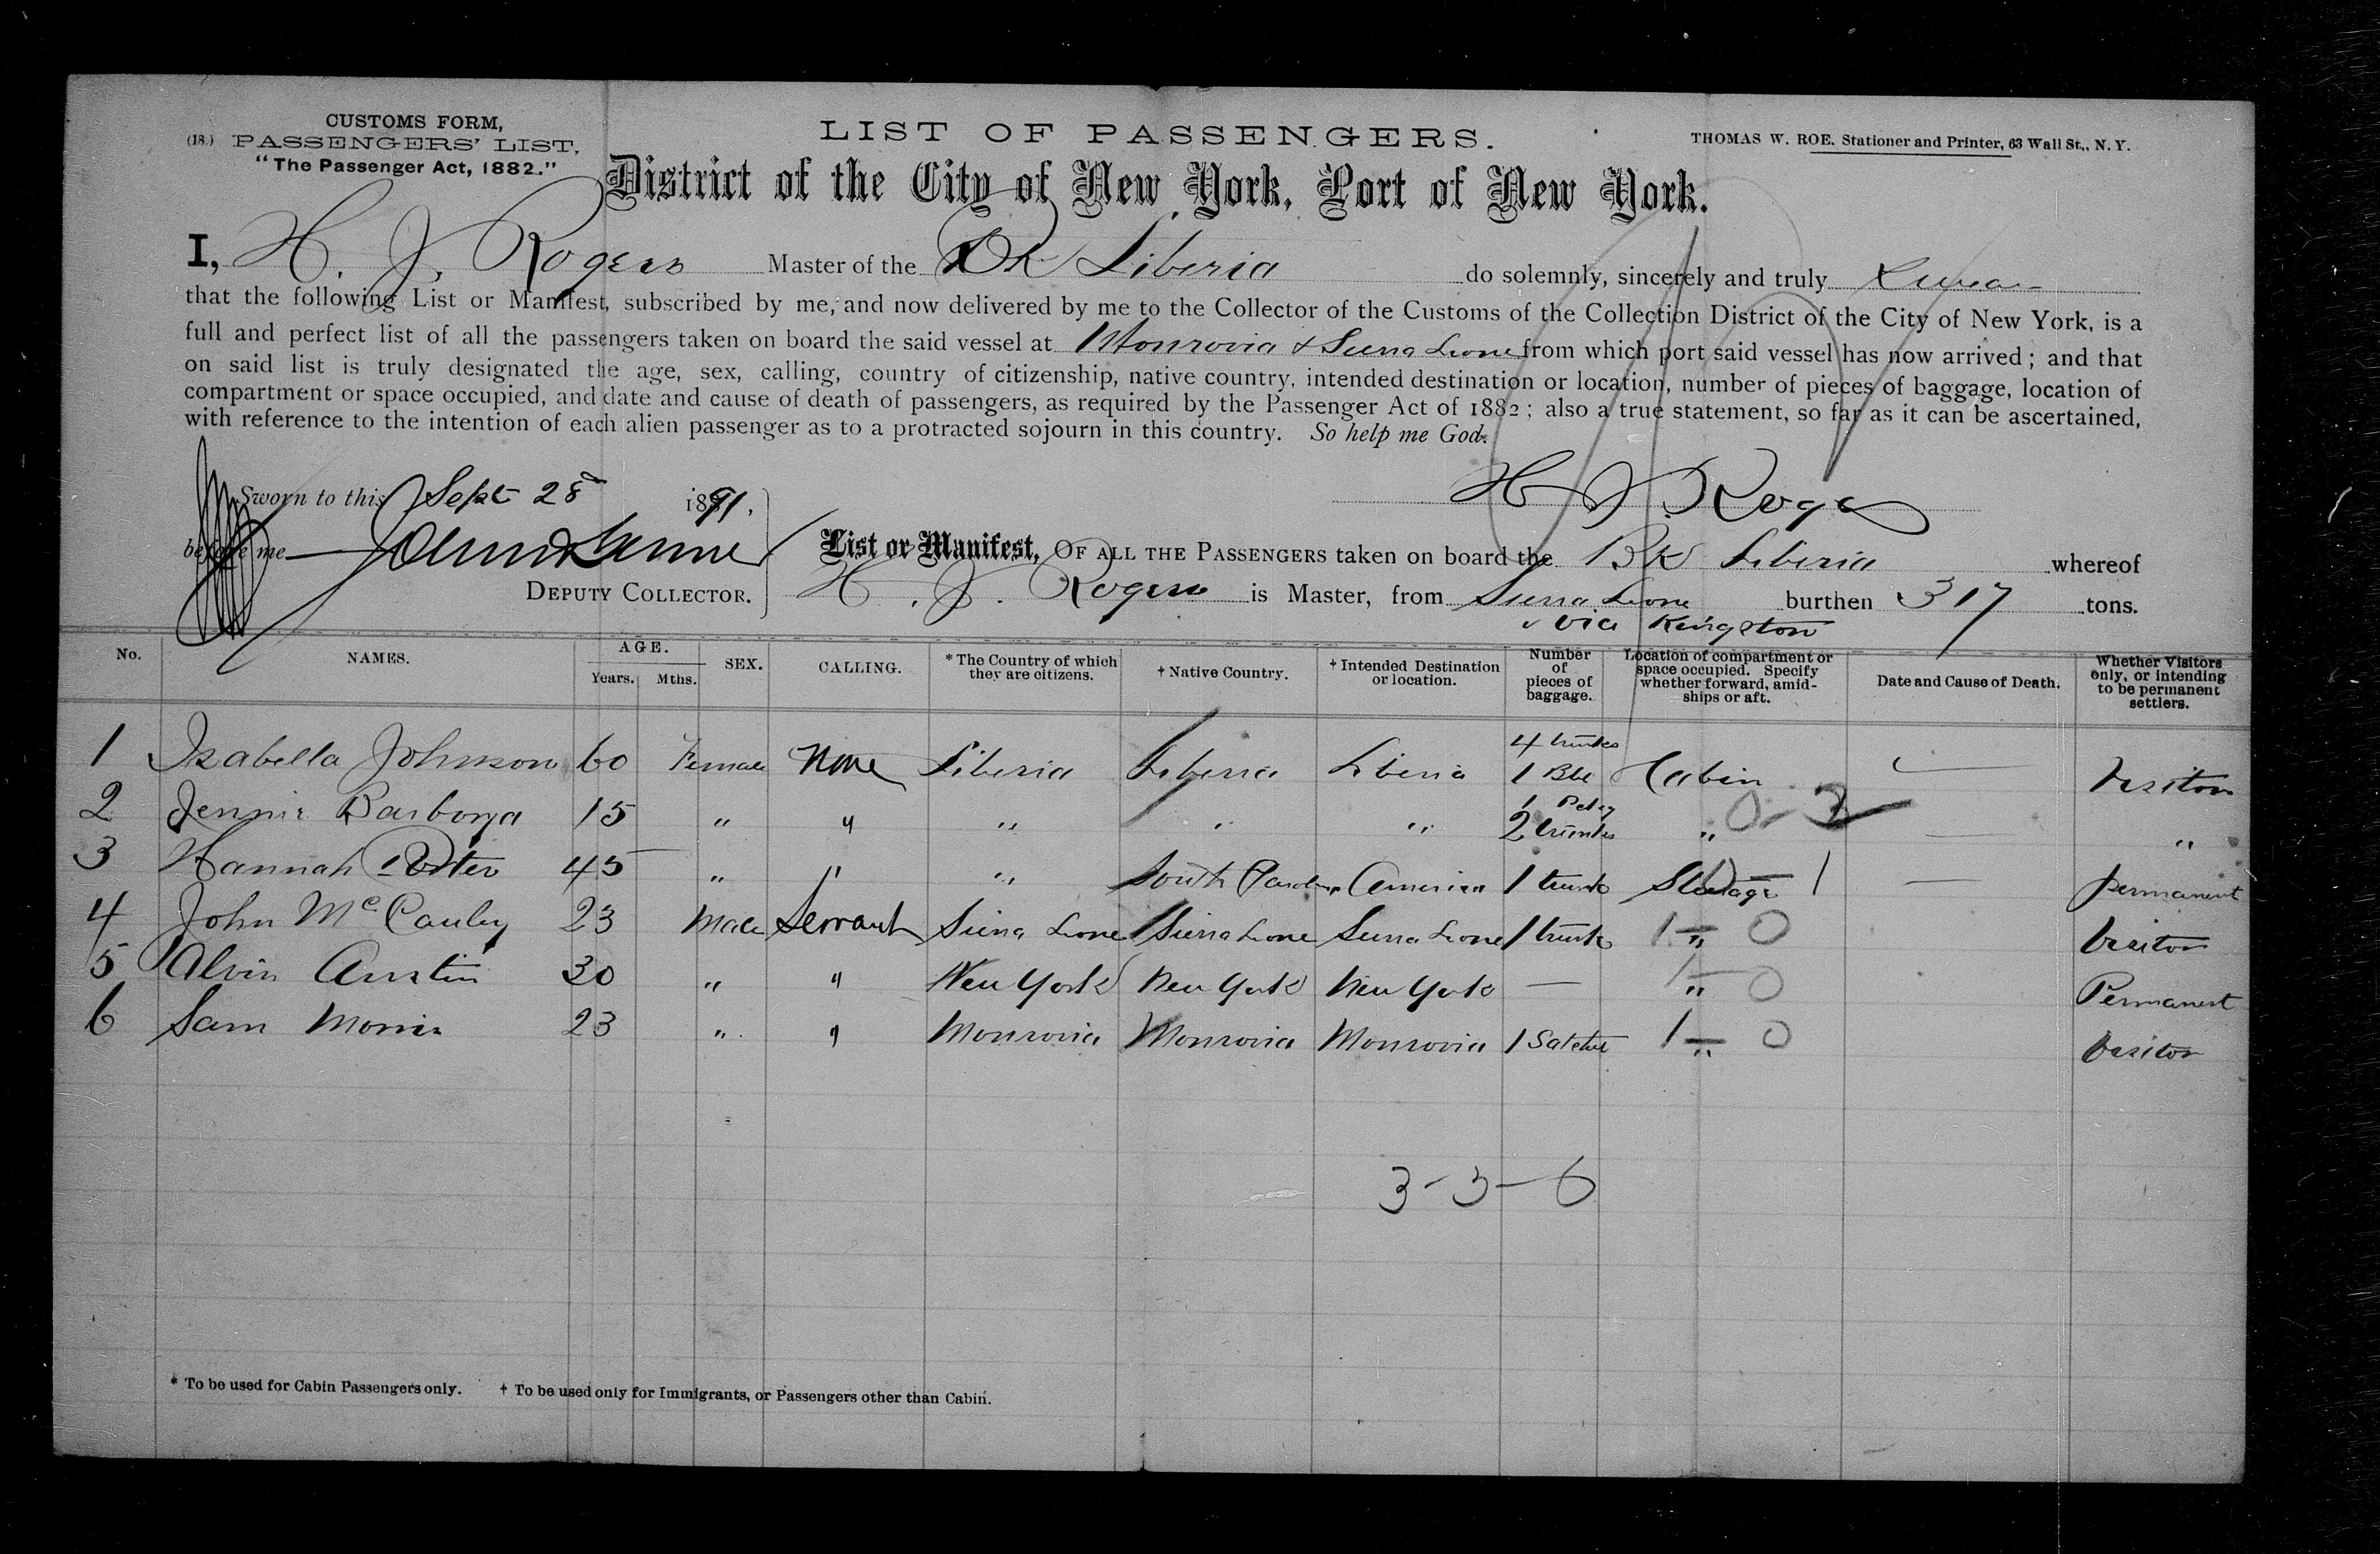 CUSTOMS FORM,
(18.) PASSENGERS' LIST,
"The Passenger Act, 1882."
LIST OF PASSENGERS.
THOMAS W. ROE. Stationer and Printer, 63 Wall St., N. Y.
District of the City of New York, Port of New York.
I, H. J. Rogers Master of the Bk Liberia do solemnly, sincerely and truly swear
that the following List or Manifest, subscribed by me, and now delivered by me to the Collector of the Customs of the Collection District of the City of New York, is a
full and perfect list of all the passengers taken on board the said vessel at Monrovia & Sierra Leone from which port said vessel has now arrived; and that
on said list is truly designated the age, sex, calling, country of citizenship, native country, intended destination or location, number of pieces of baggage, location of
compartment or space occupied, and date and cause of death of passengers, as required by the Passenger Act of 1882; also a true statement, so far as it can be ascertained,
with reference to the intention of each alien passenger as to a protracted sojourn in this country. So help me God.
Sworn to this Sept 28 1891,
H J Rogers
before me
DEPUTY COLLECTOR.
List or Manifest, OF ALL THE PASSENGERS taken on board the Bk Liberia whereof
H. J. Rogers is Master, from Sierra Leone burthen 317 tons.
via Kingston
No. NAMES. AGE. Years. Mths. SEX. CALLING. * The Country of which they are citizens. † Native Country. † Intended Destination or location. Number of pieces of baggage. Location of compartment or space occupied. Specify whether forward, amidships or aft. Date and Cause of Death. Whether Visitors only, or intending to be permanent settlers.
1 Isabella Johnson 60 Female None Liberia Liberia Liberia 4 trunks 1 Bbl Cabin — Visitor
2 Jennie Barboza 15 " " " " " 1 Pckg 2 trunks " 0-2 — "
3 Hannah Porter 45 " " " South Carolina America 1 trunk Steerage 0-1 — permanent
4 John McCauley 23 Male Servant Sierra Leone Sierra Leone Sierra Leone 1 trunk " 1-0 Visitor
5 Alvin Austin 30 " " New York New York New York — " 1-0 Permanent
6 Sam Morris 23 " " Monrovia Monrovia Monrovia 1 Satchel " 1-0 Visitor
3-3-6
* To be used for Cabin Passengers only. † To be used only for Immigrants, or Passengers other than Cabin.